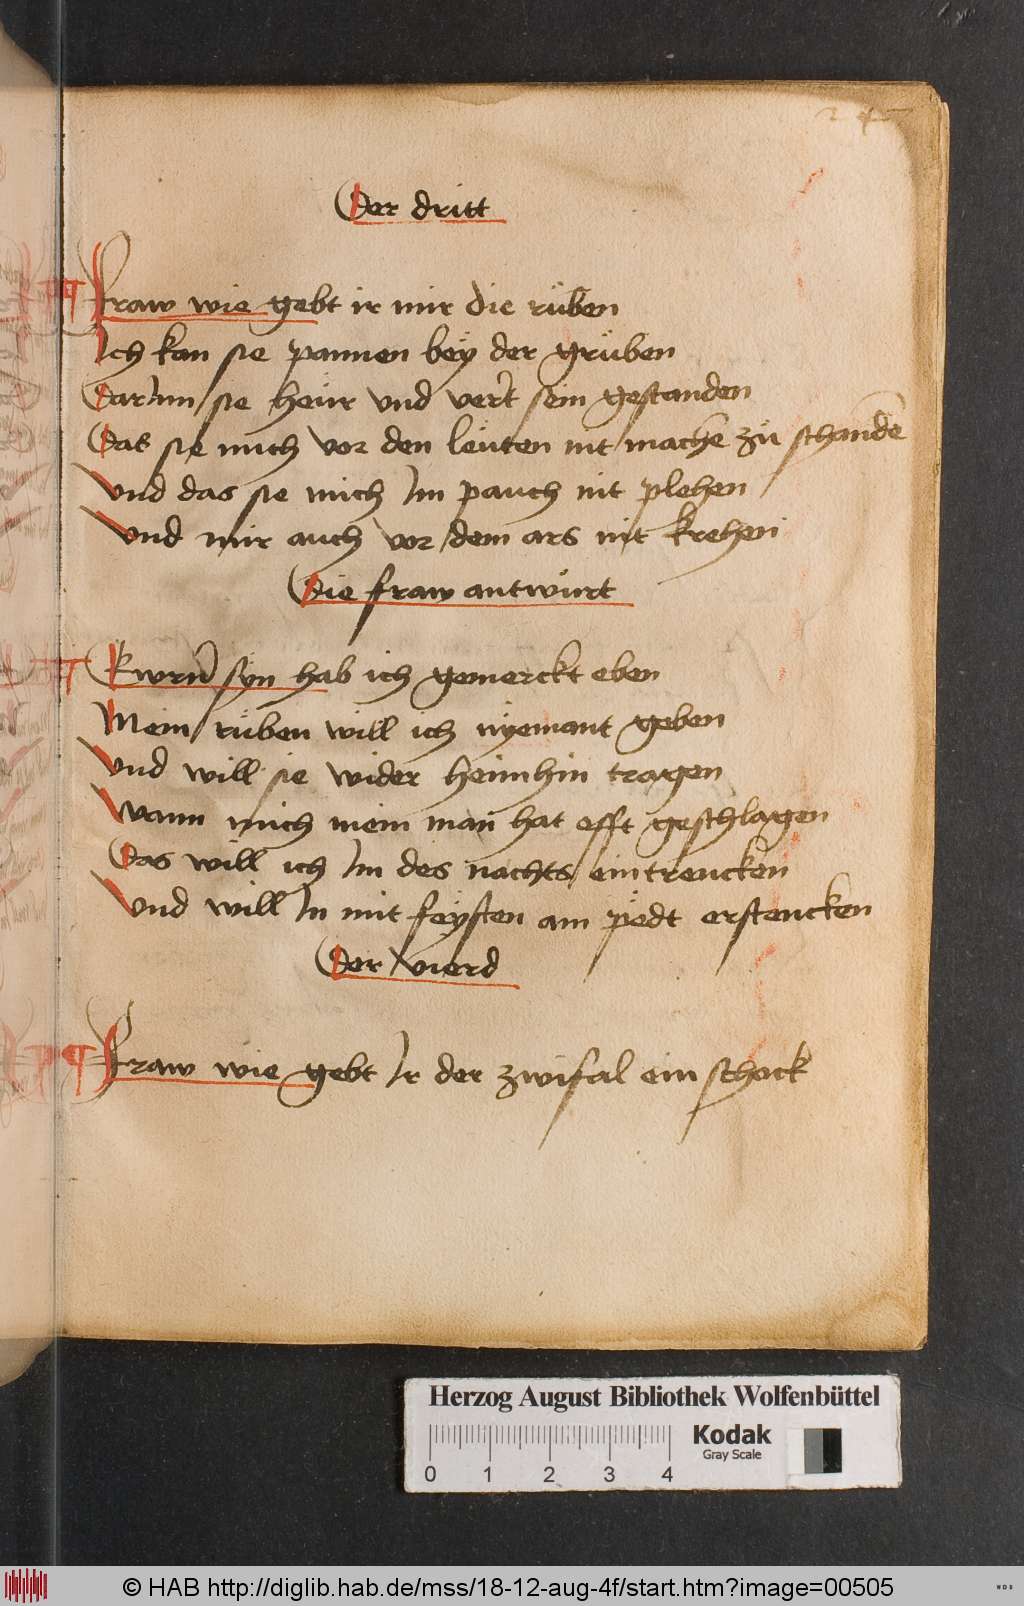 Der dritt
Fraw wie gebt ir mir die rüben
Ich kan sie pannen bey der grüben
Darumb sie heür vnd vert sein gestanden
Das sie mich vor den leüten nit mache zü schande
Vnd das sie mich Im pauch nit plehen
Vnd mir auch vor dem ars nit krehen
Die fraw antwürt
Ewrn syn hab ich gemerckt eben
Mein rüben will ich nyemant geben
Vnd will sie wider heimhin tragen
Wann mich mein man hat efft geschlagen
Das will ich Im des nachts eintrencken
Vnd will In mit feysten am pedt erstencken
Der vierd
Fraw wie gebt Ir der zwifal ein schock
Herzog August Bibliothek Wolfenbüttel
0 1 2 3 4
Kodak
Gray Scale
© HAB http://diglib.hab.de/mss/18-12-aug-4f/start.htm?image=00505